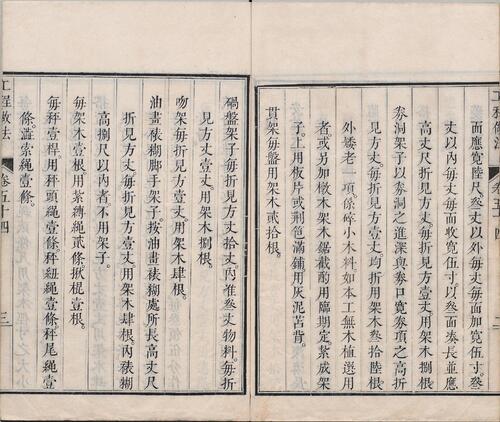 面加寬陸尺叁丈以外每面加寬壹丈叁
丈以內每丈每面收寬伍寸以叁面湊長並應
高丈尺折見方丈每折見方壹丈用架木捌根
券洞架子以券洞之進深與券口寬券項之高折
見方丈每折見方壹丈均折用架木叁拾陸根
外矮老一項係碎小木料如本工無木植選用
者或另加檄木架木鋸截酌用臨期定紮成架
子上用板片或荆笆滿鋪用灰泥苫背
貫架每盤用架木貳拾根
工程做法
卷五十四
二
碢盤架子每折見方丈拾丈內推叁丈物料每折
見方丈壹丈用架木捌根
吻架每折見方壹丈用架木肆根
油畫裱糊脚手架子按油畫裱糊處所長高丈尺
折見方丈每折見方壹丈用架木肆根內裱糊
高捌尺以內者不用架子
每架木壹根用紮縛繩貳條揪棍壹根
每秤壹桿用秤頭繩壹條秤紐繩壹條秤尾繩壹
條澁索繩壹條
工程做法
卷五十四
三